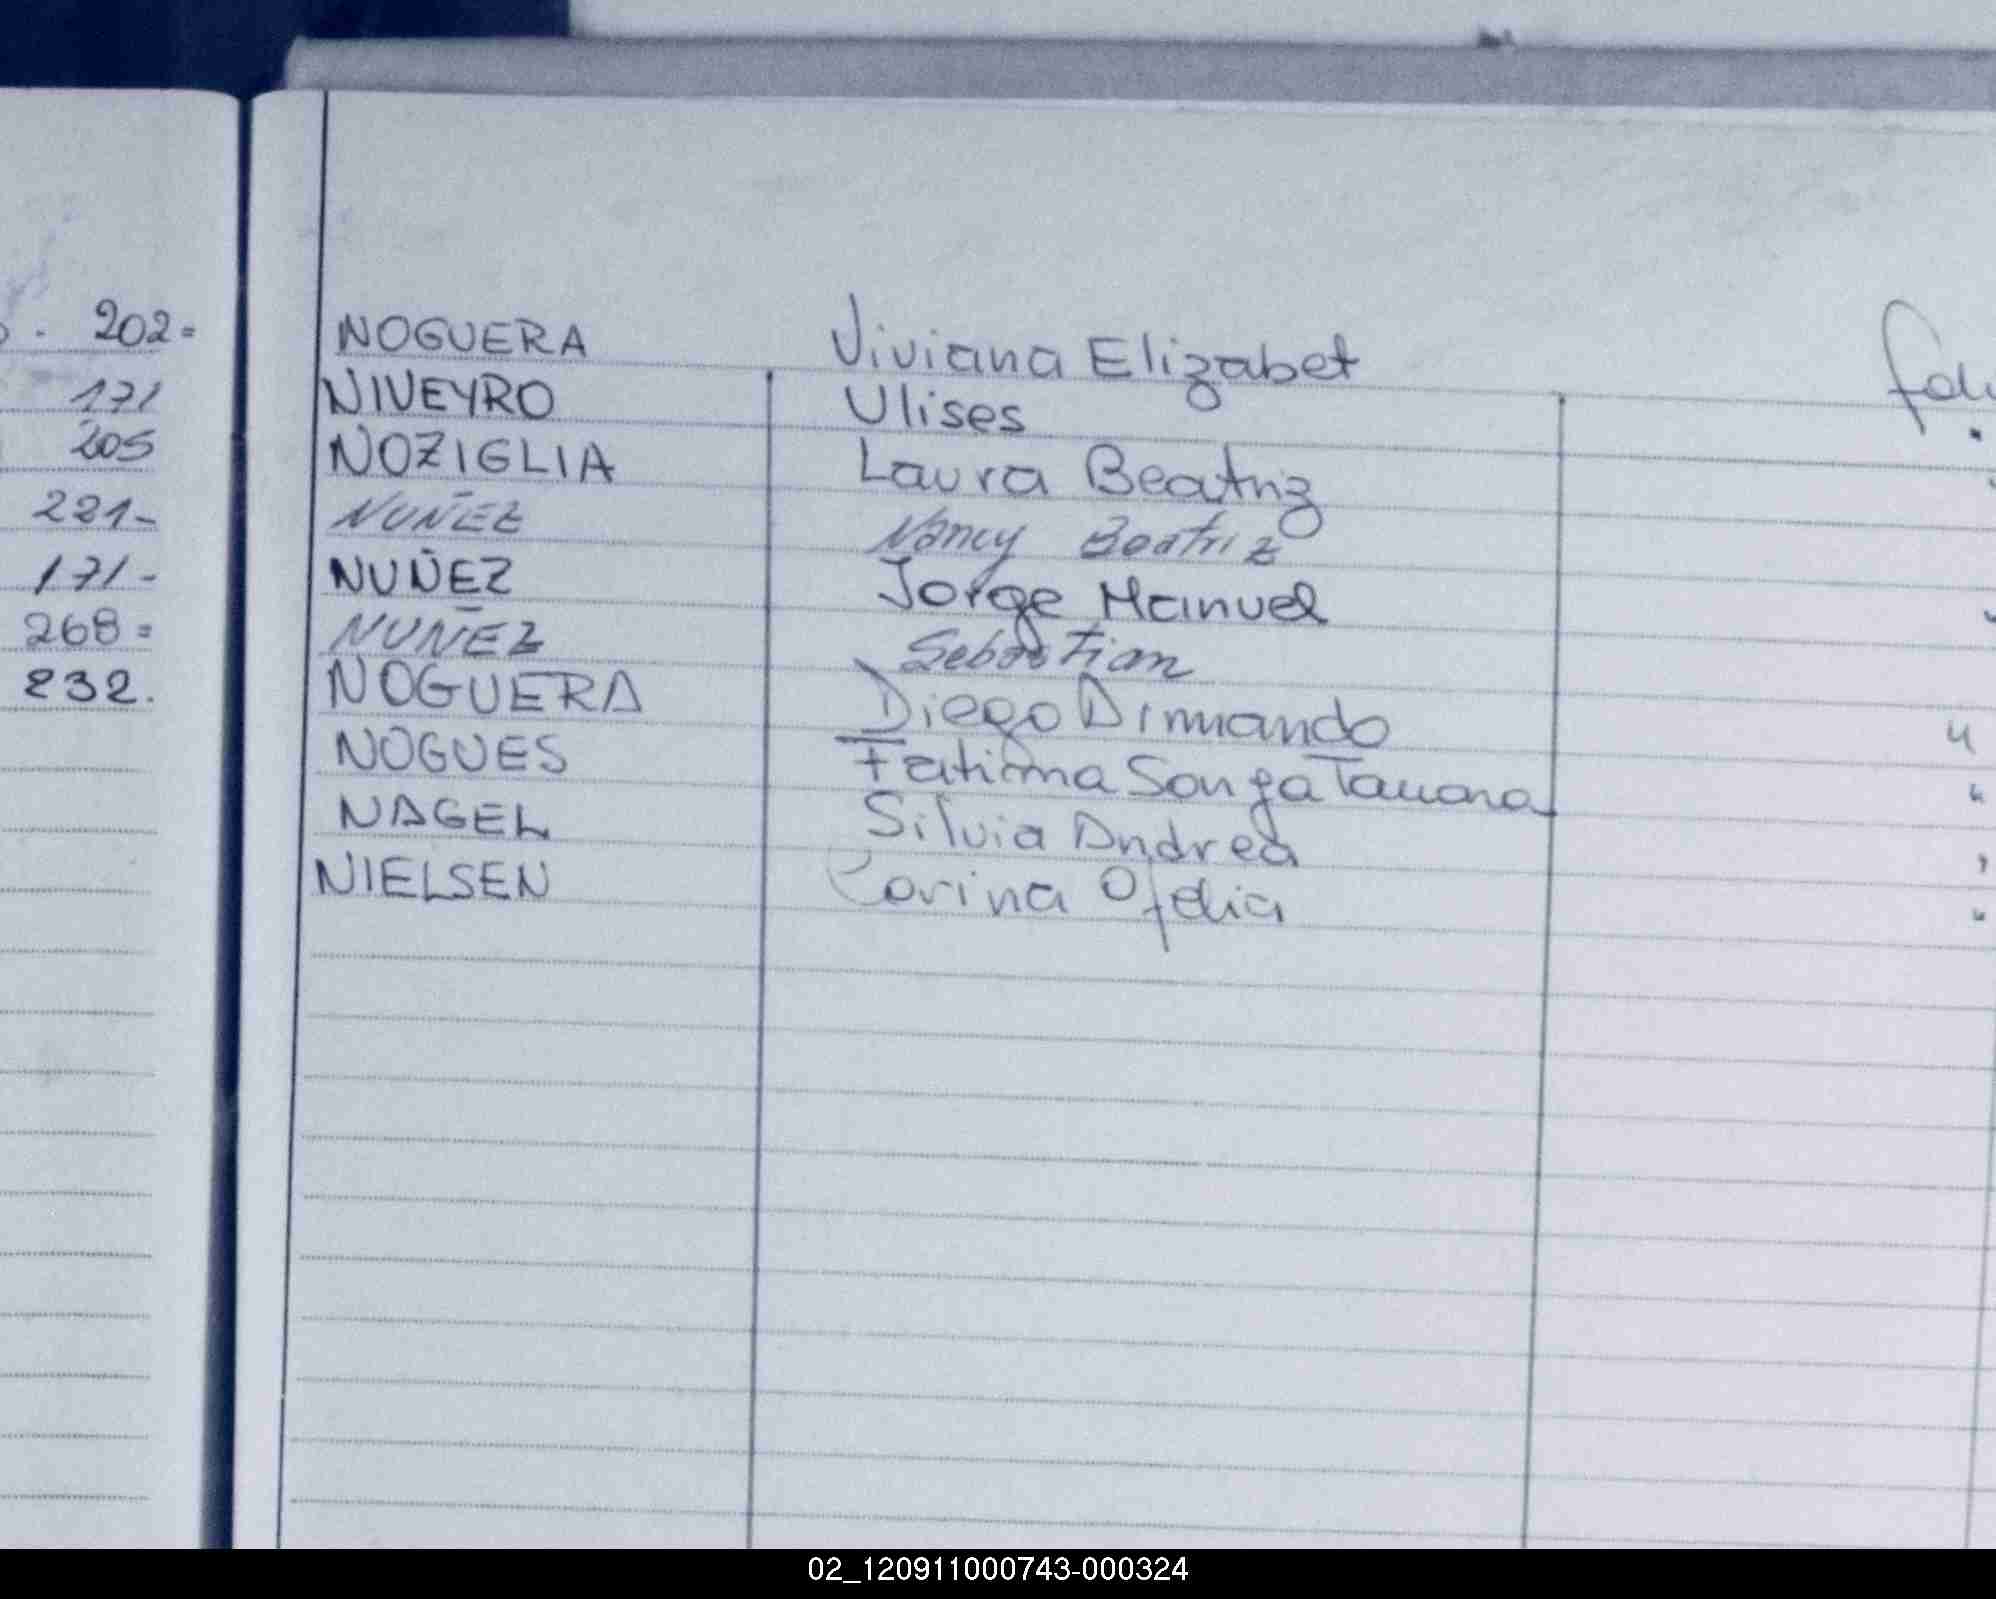 202=
171
205
221-
171-
268=
232.
NOGUERA Viviana Elizabet
NIVEYRO Ulises
NOZIGLIA Laura Beatriz
NUÑEZ Nancy Beatriz
NUÑEZ Jorge Manuel
NUÑEZ Sebastian
NOGUERA Diego Armando
NOGUES Fatima Tamara
NAGEL Silvia Andrea
NIELSEN Corina Ofelia
02_120911000743-000324